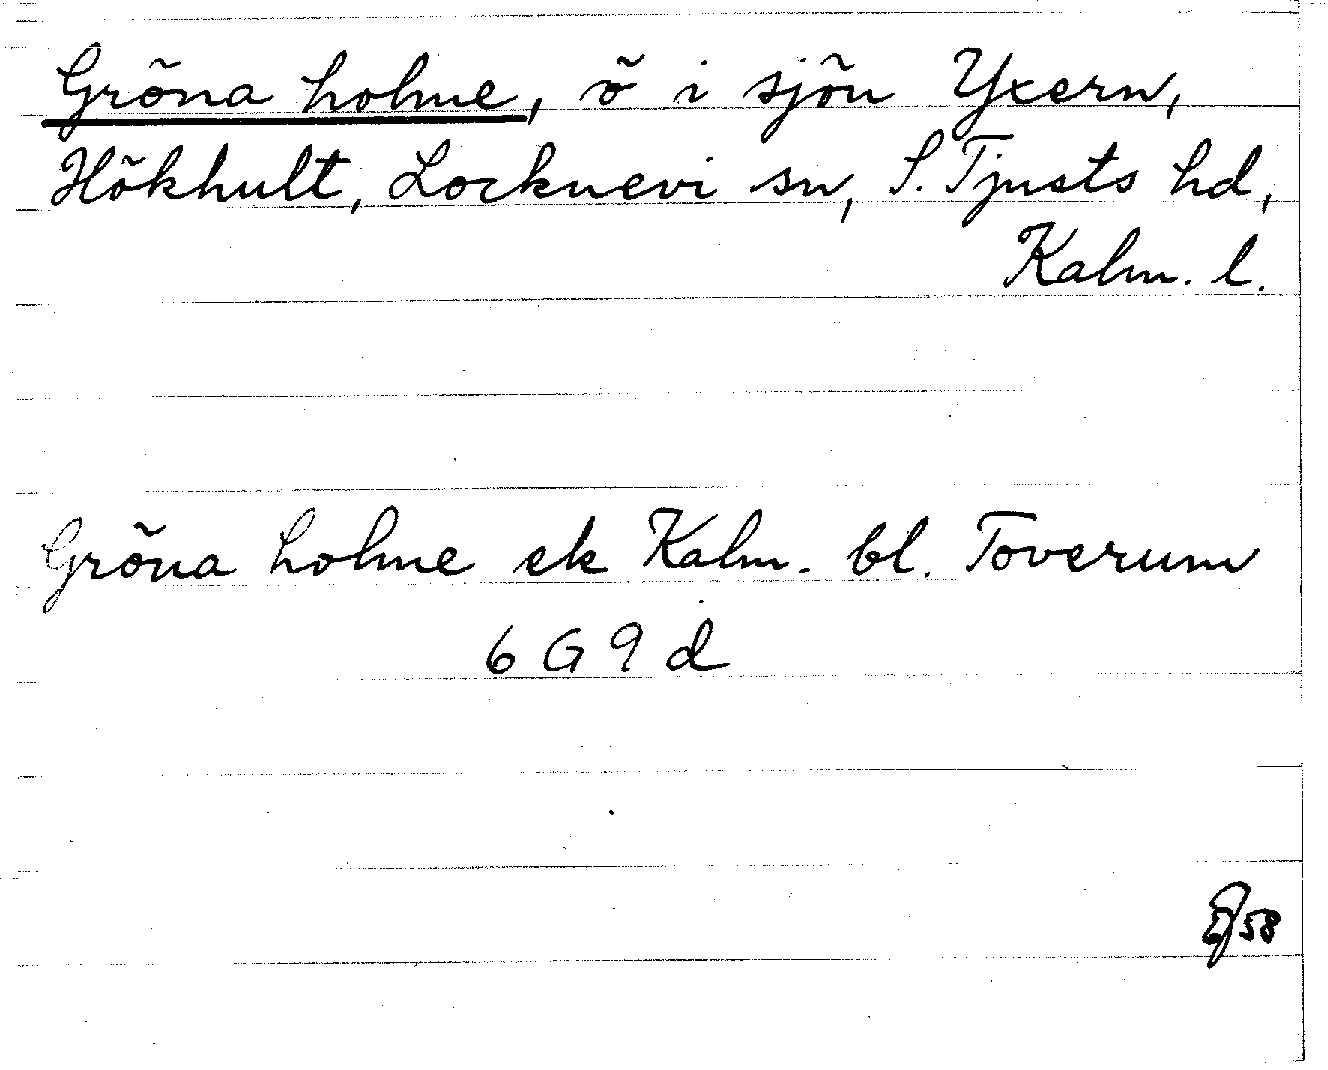 Gröna holme, ö i sjön Yxern,
Hökhult, Locknevi sn, S. Tjusts hd,
Kalm. l.
Gröna holme ek Kalm. bl. Toverum
6 G 9 d
58